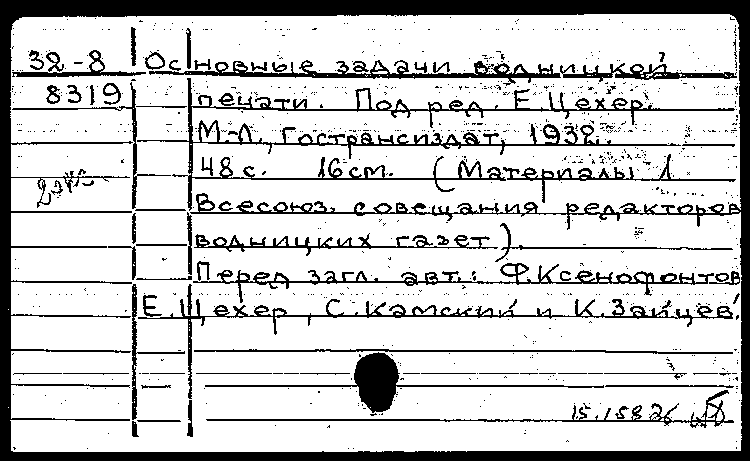 32-8 Основные задачи водницкой
8319 печати. Под ред. Е.Цехер.
М.-Л., Гострансиздат, 1932.
48 с. 16 см. (Материалы 1
Всесоюз. совещания редакторов
водницких газет).
Перед загл. авт.: Ф.Ксенофонтов
Е.Цехер, С.Камский и К.Зайцев.
15.15826